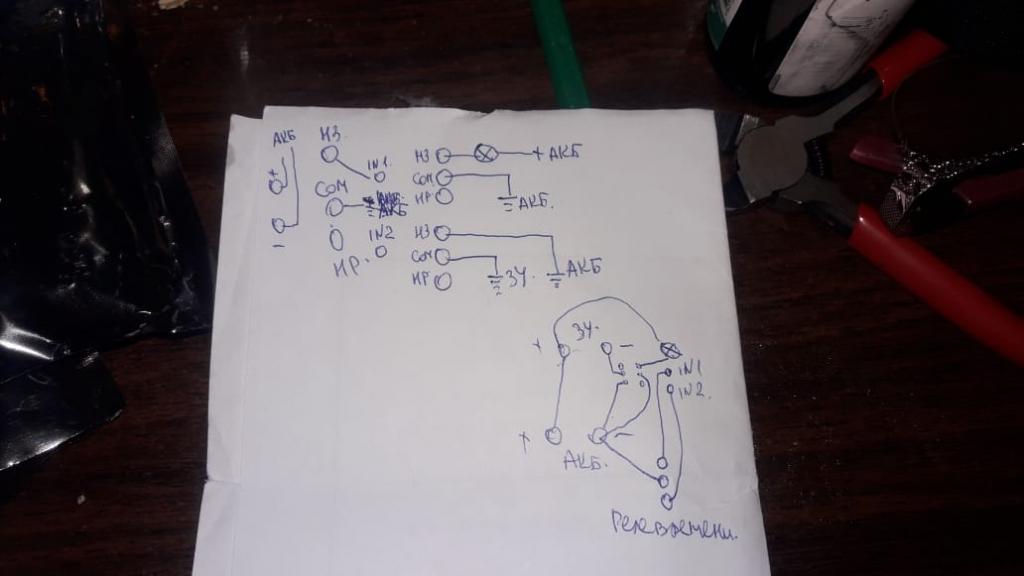 АКБ
+
-
НЗ.
СОМ
НР.
IN1.
АКБ
IN2
НЗ
+ АКБ
СОМ
АКБ.
НР
НЗ
АКБ
СОМ
ЗУ.
НР
+ ЗУ. -
IN1
IN2.
+ -
АКБ.
Реле времени.